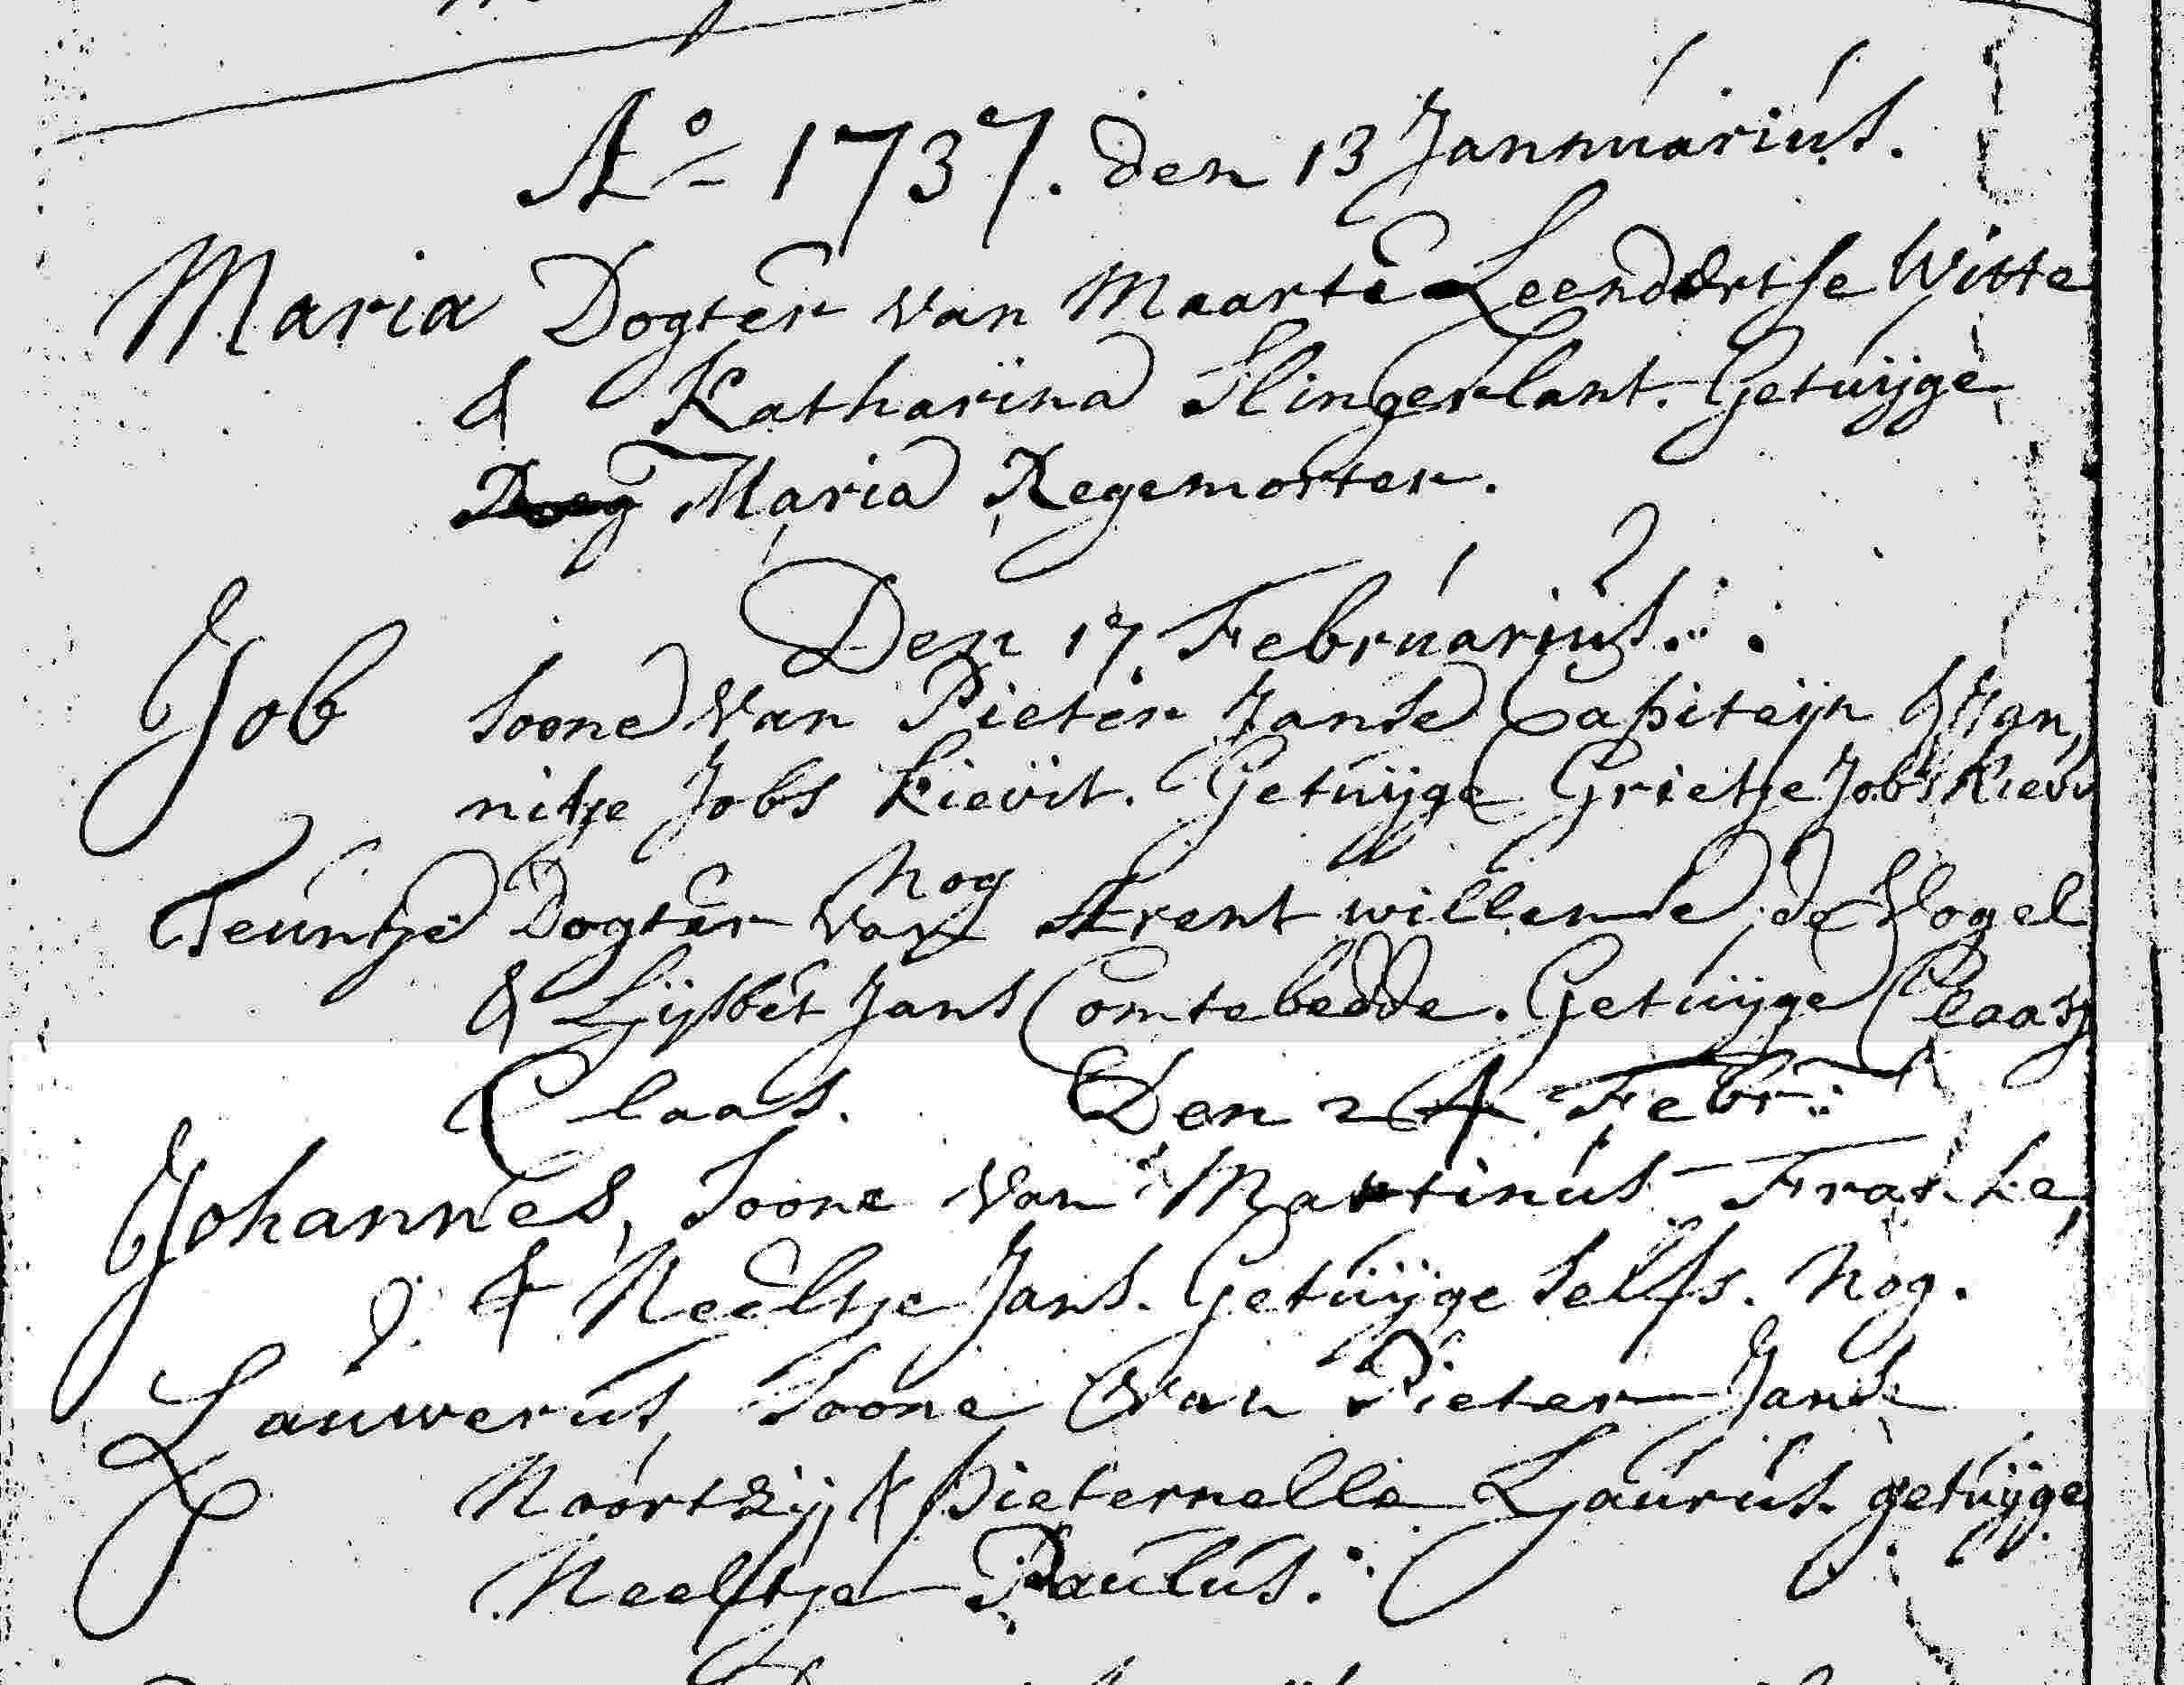 A° 1737. den 13 Jannuariús.
Maria Dogter van Maarte Leendertse Witte
& Katharina Slingerlant. Getúÿge
Maria Regemorter.
Den 17 Februariús.
Job soone van Pieter Janse Capiteijn & Jan,
nitje Jobs Kievit. Getúÿge Grietje Jobs Kievi
nog
Teuntje Dogter van Arent willemse de Vogel
& Lijsbet Jans Comtebedde. Getúÿge Claasj
Claas. Den 24 Febr:
Johannes, soone van Martinús Franke,
& Neeltje Jans. Getúÿge selfs. Nog.
Lauwerus, soone van Pieter Janse
Noortzij, & pieternelle Laurús. getúÿge
Neeltje Paulús.